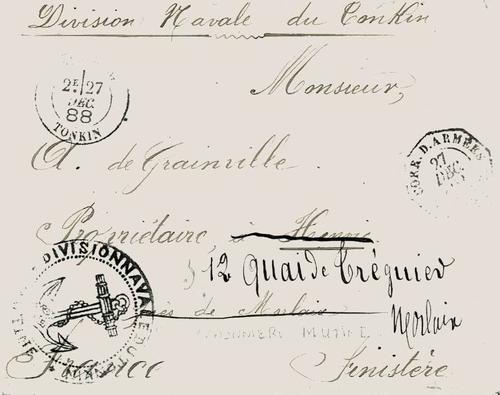 Division Navale du Tonkin
Monsieur,
2E/27
DEC.
88
TONKIN
CORR. D. ARMÉES
27
DEC
A. de Grainville
Propriétaire, à Henvic
12 Quai de Tréguier
près de Morlaix
Morlaix
DIVISION NAVALE DU TONKIN
CANONNIERE MUTINE
France Finistère